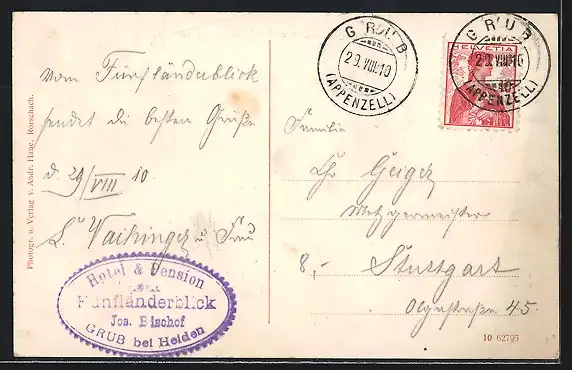 Vom Fünfländerblick
sendet die besten Grüße
d. 29/VIII 10
L. Vaihinger u. Frau
Hotel & Pension
Fünfländerblick
Jos. Bischof
GRUB bei Heiden
Photogr. u. Verlag v. Andr. Hane, Rorschach.
GRUB
29.VIII.10
(APPENZELL)
HELVETIA
GRUB
29.VIII.10
(APPENZELL)
Familie
Chr Geiger
Metzgermeister
8,- Stuttgart
Olgastraße 45.
10 62795